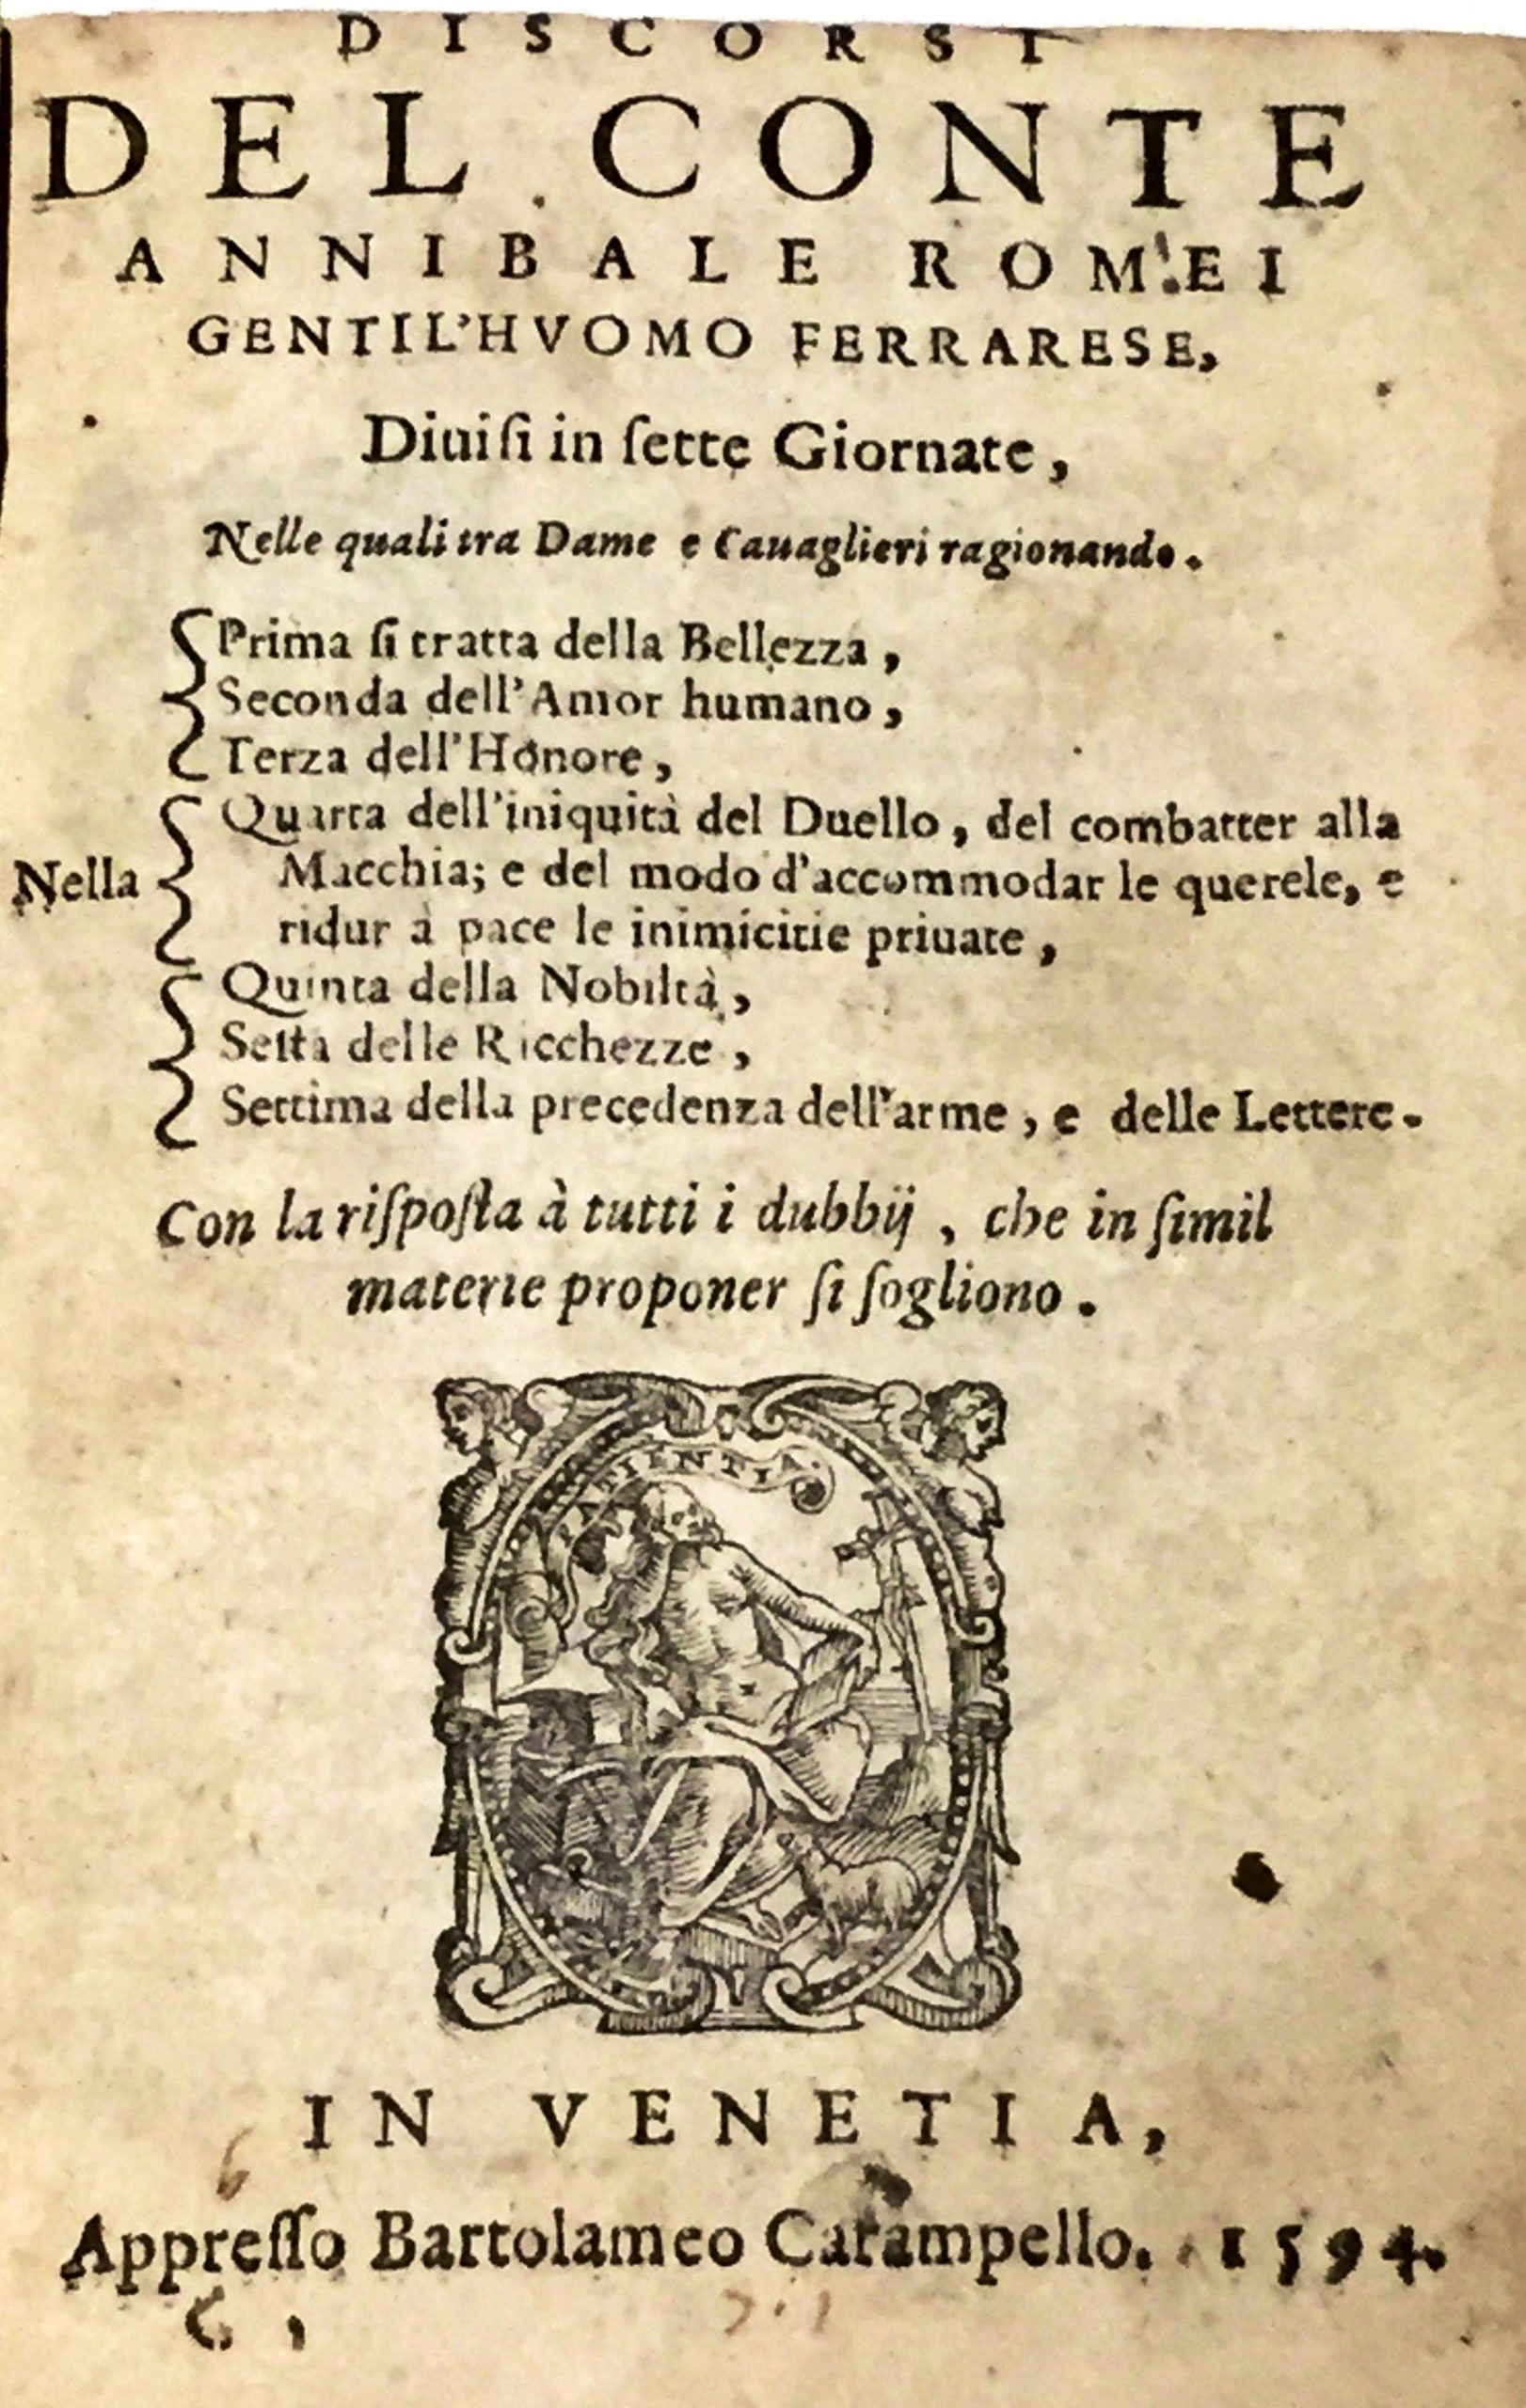 DISCORSI
DEL CONTE
ANNIBALE ROMEI
GENTIL'HVOMO FERRARESE,
Diuiſi in ſette Giornate,
Nelle quali tra Dame e Cauaglieri ragionando.
Prima ſi tratta della Bellezza,
Seconda dell'Amor humano,
Terza dell'Honore,
Quarta dell'iniquità del Duello, del combatter alla
Nella
Macchia; e del modo d'accommodar le querele, e
ridur à pace le inimicitie priuate,
Quinta della Nobiltà,
Sesta delle Ricchezze,
Settima della precedenza dell'arme, e delle Lettere.
Con la riſpoſta à tutti i dubbij, che in ſimil
materie proponer ſi ſogliono.
PATIENTIA.
IN VENETIA,
Appreſſo Bartolameo Carampello. 1594.